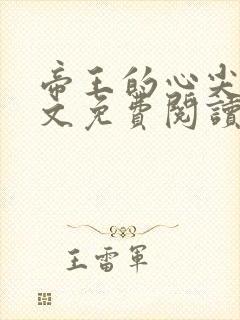 帝王的心尖
文免費閱讀
王雷軍